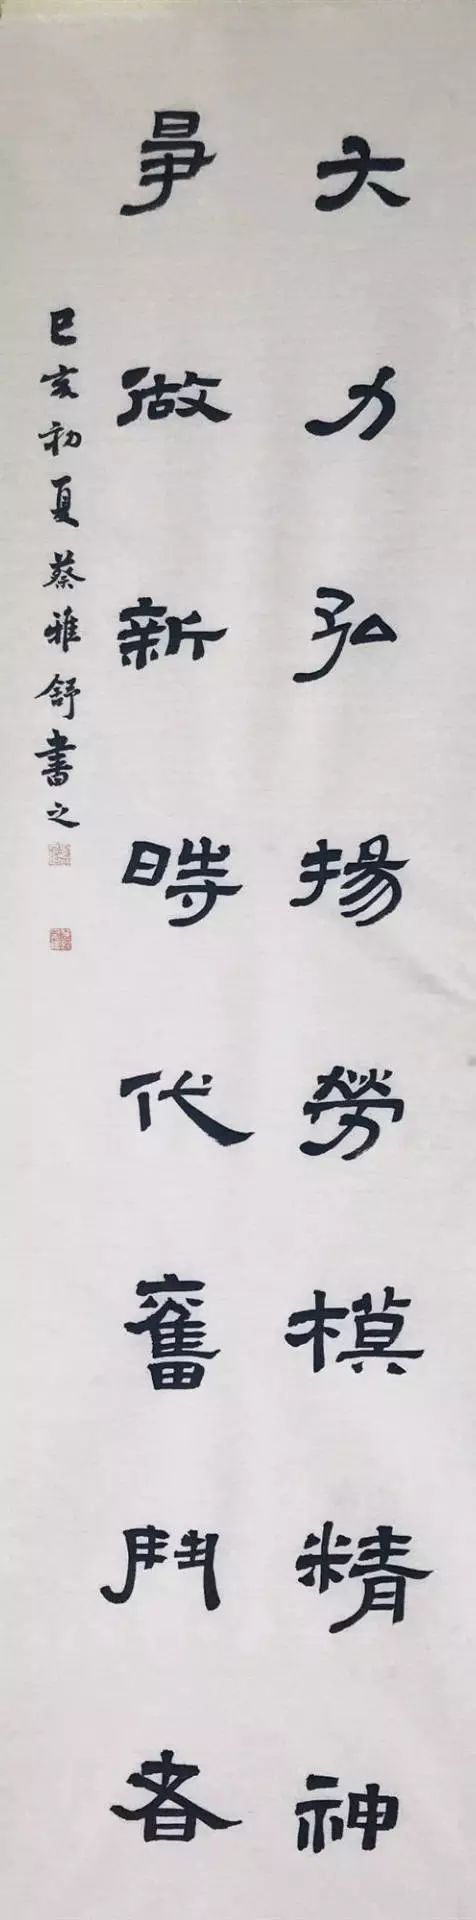 大力弘揚勞模精神
爭做新時代奮鬥者
己亥初夏蔡雅舒書之